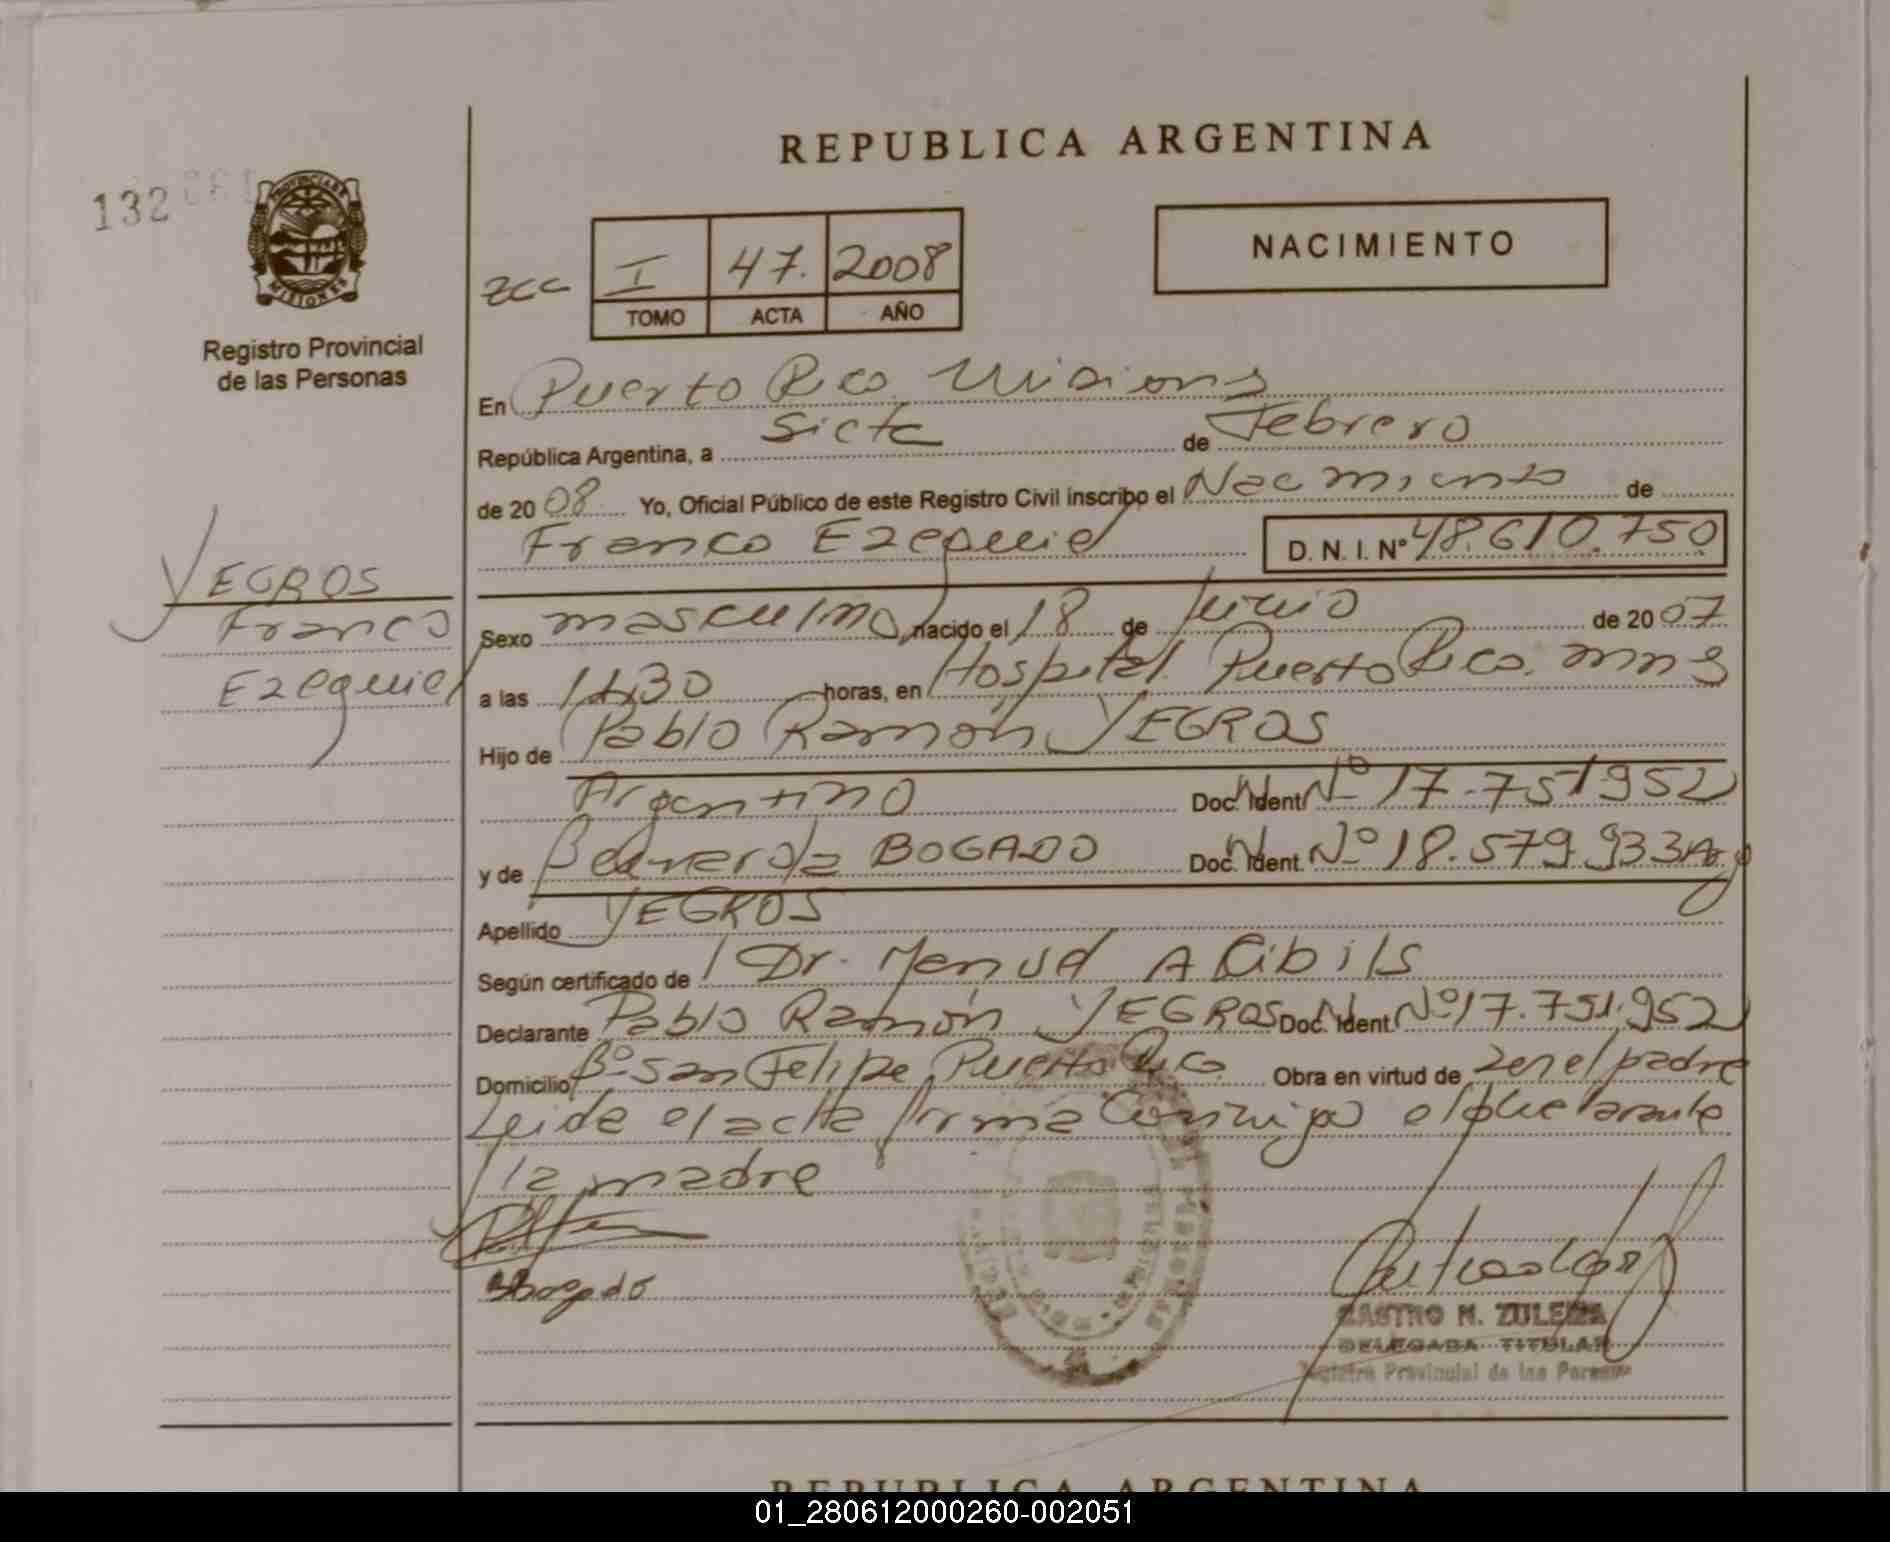 REPUBLICA ARGENTINA
132
PROVINCIA DE
MISIONES
NACIMIENTO
zcc I 47. 2008
TOMO ACTA AÑO
Registro Provincial
de las Personas
En Puerto Rico Misiones
República Argentina, a Siete de Febrero
de 2008. Yo, Oficial Público de este Registro Civil inscribo el Nacimiento de
Franco Ezequiel D. N. I. Nº 48.610.750
YEGROS
Franco
Ezequiel
Sexo masculino, nacido el 18 de Junio de 2007
a las 11,30 horas, en Hospital Puerto Rico. mnes
Hijo de Pablo Ramón YEGROS
Argentino Doc. Ident. Nº 17.751952
y de BOGADO Doc. Ident. Nº 18.579.933 Arg
Apellido YEGROS
Según certificado de Dr. Manuel A Cibils
Declarante Pablo Ramón YEGROS Doc. Ident. Nº 17.751.952
Domicilio Bº San Felipe, Puerto Rico. Obra en virtud de ser el padre
Leida el acta firma Conmigo el declarante
y la madre
Bogado
CASTRO M. ZULEMA
DELEGADA TITULAR
Registro Provincial de las Personas
REPUBLICA ARGENTINA
01_280612000260-002051